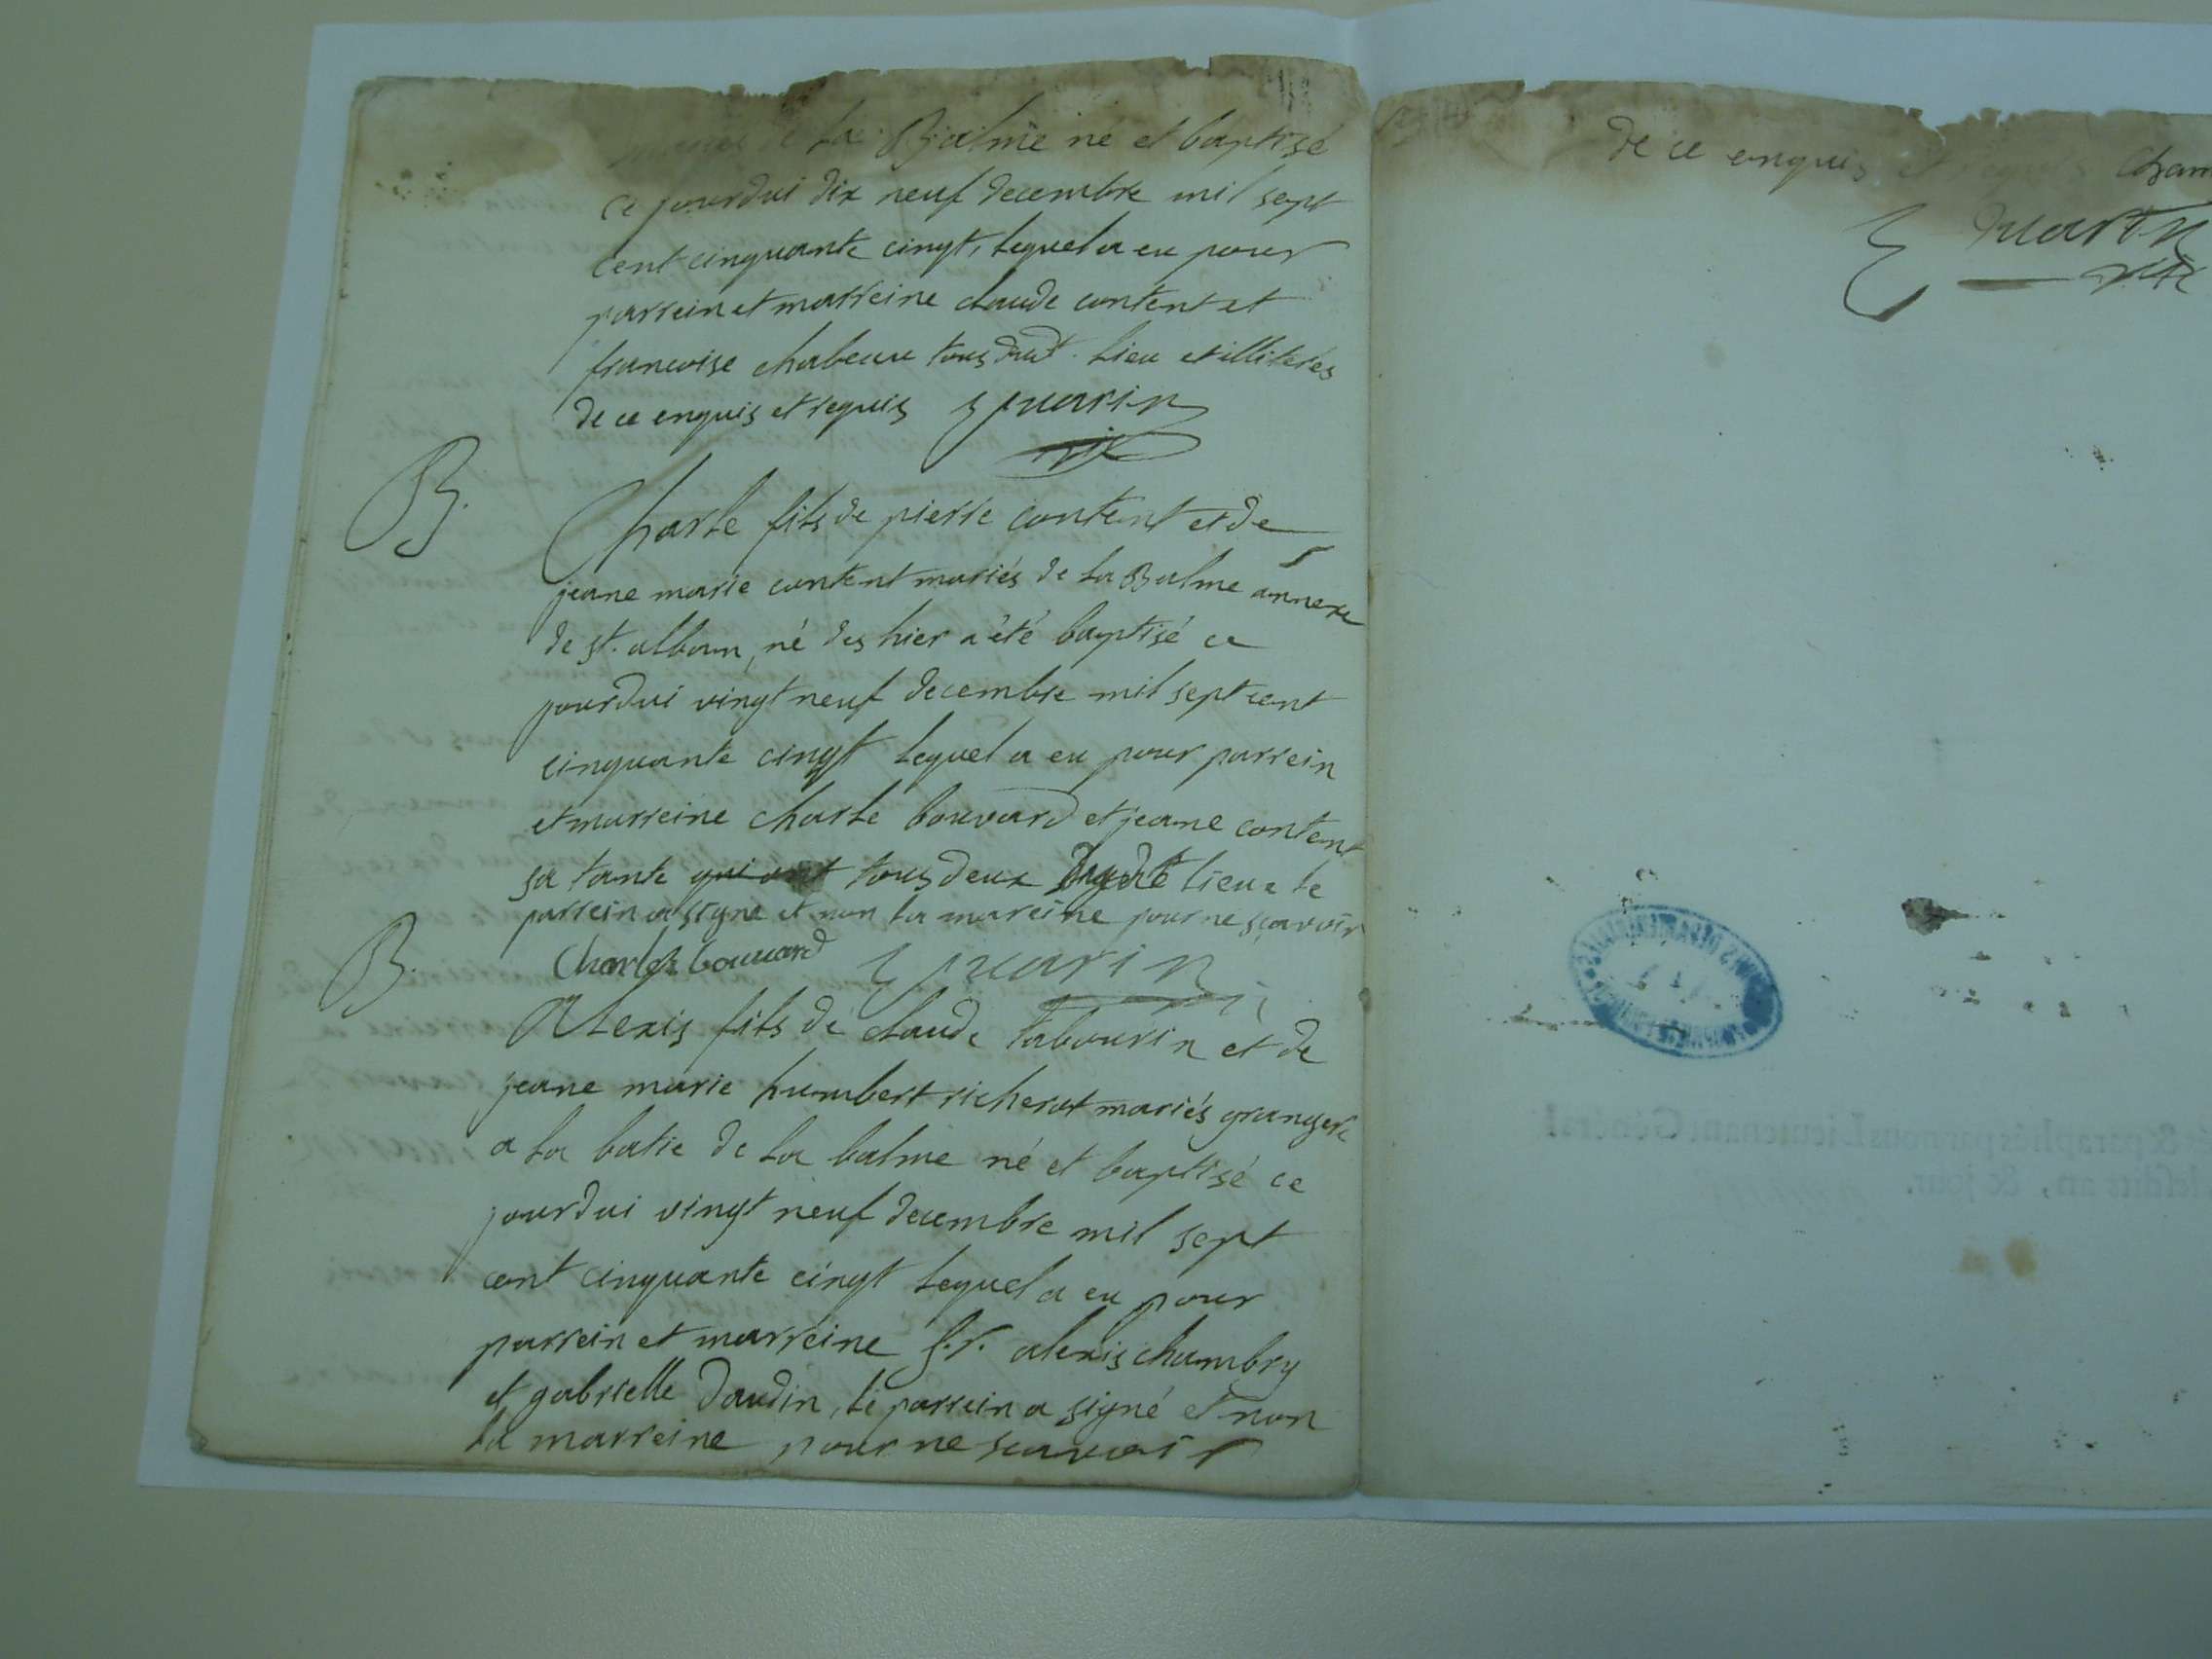 de La Balme né et baptisé
ce jourdui dix neuf decembre mil sept
cent cinquante cinqt, lequel a eu pour
parrein et marreine claude content et
francoise chabeau tous dudt. lieu et illiterés
de ce enquis et requis
B.
Charle fils de pierre content et de
jeane marie content mariés de la Balme annexe
de st. alban, né des hier a été baptisé ce
jourdui vingt neuf decembre mil sept cent
cinquante cinqt lequel a eu pour parrein
et marreine charle bouvard et jeane content
sa tante qui ont tous deux dudt lieu le
parrein a signé et non la mareine pour ne sçavoir
Charles bouuard
B.
Alexis fils de claude labourin et de
jeane marie humbert richerot mariés grangers
a la batie de la balme né et baptisé ce
jourdui vingt neuf decembre mil sept
cent cinquante cinqt lequel a eu pour
parrein et marreine s.r. alexis chambry
et gabrielle daudin, le parrein a signé et non
la marreine pour ne scavoir
de ce enquis et requis
& paraphés par nous Lieutenant Général
an, & jour.